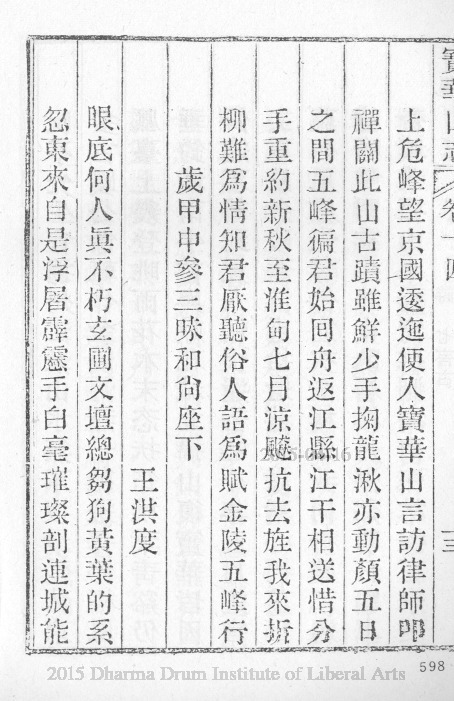 寶華山志 卷十四 三
上危峰望京國逶迤便入寶華山言訪律師叩
禪關此山古蹟雖鮮少手掬龍湫亦動顏五日
之間五峰徧君始囘舟返江縣江干相送惜分
手重約新秋至淮甸七月涼飈抗去旌我來折
柳難爲情知君厭聽俗人語爲賦金陵五峰行
歲甲申參三昧和尙座下
王洪度
眼底何人眞不朽玄圃文壇總芻狗黃葉的系
忽東來自是浮屠霹靂手白毫璀璨剖連城能
598
2015 Dharma Drum Institute of Liberal Arts